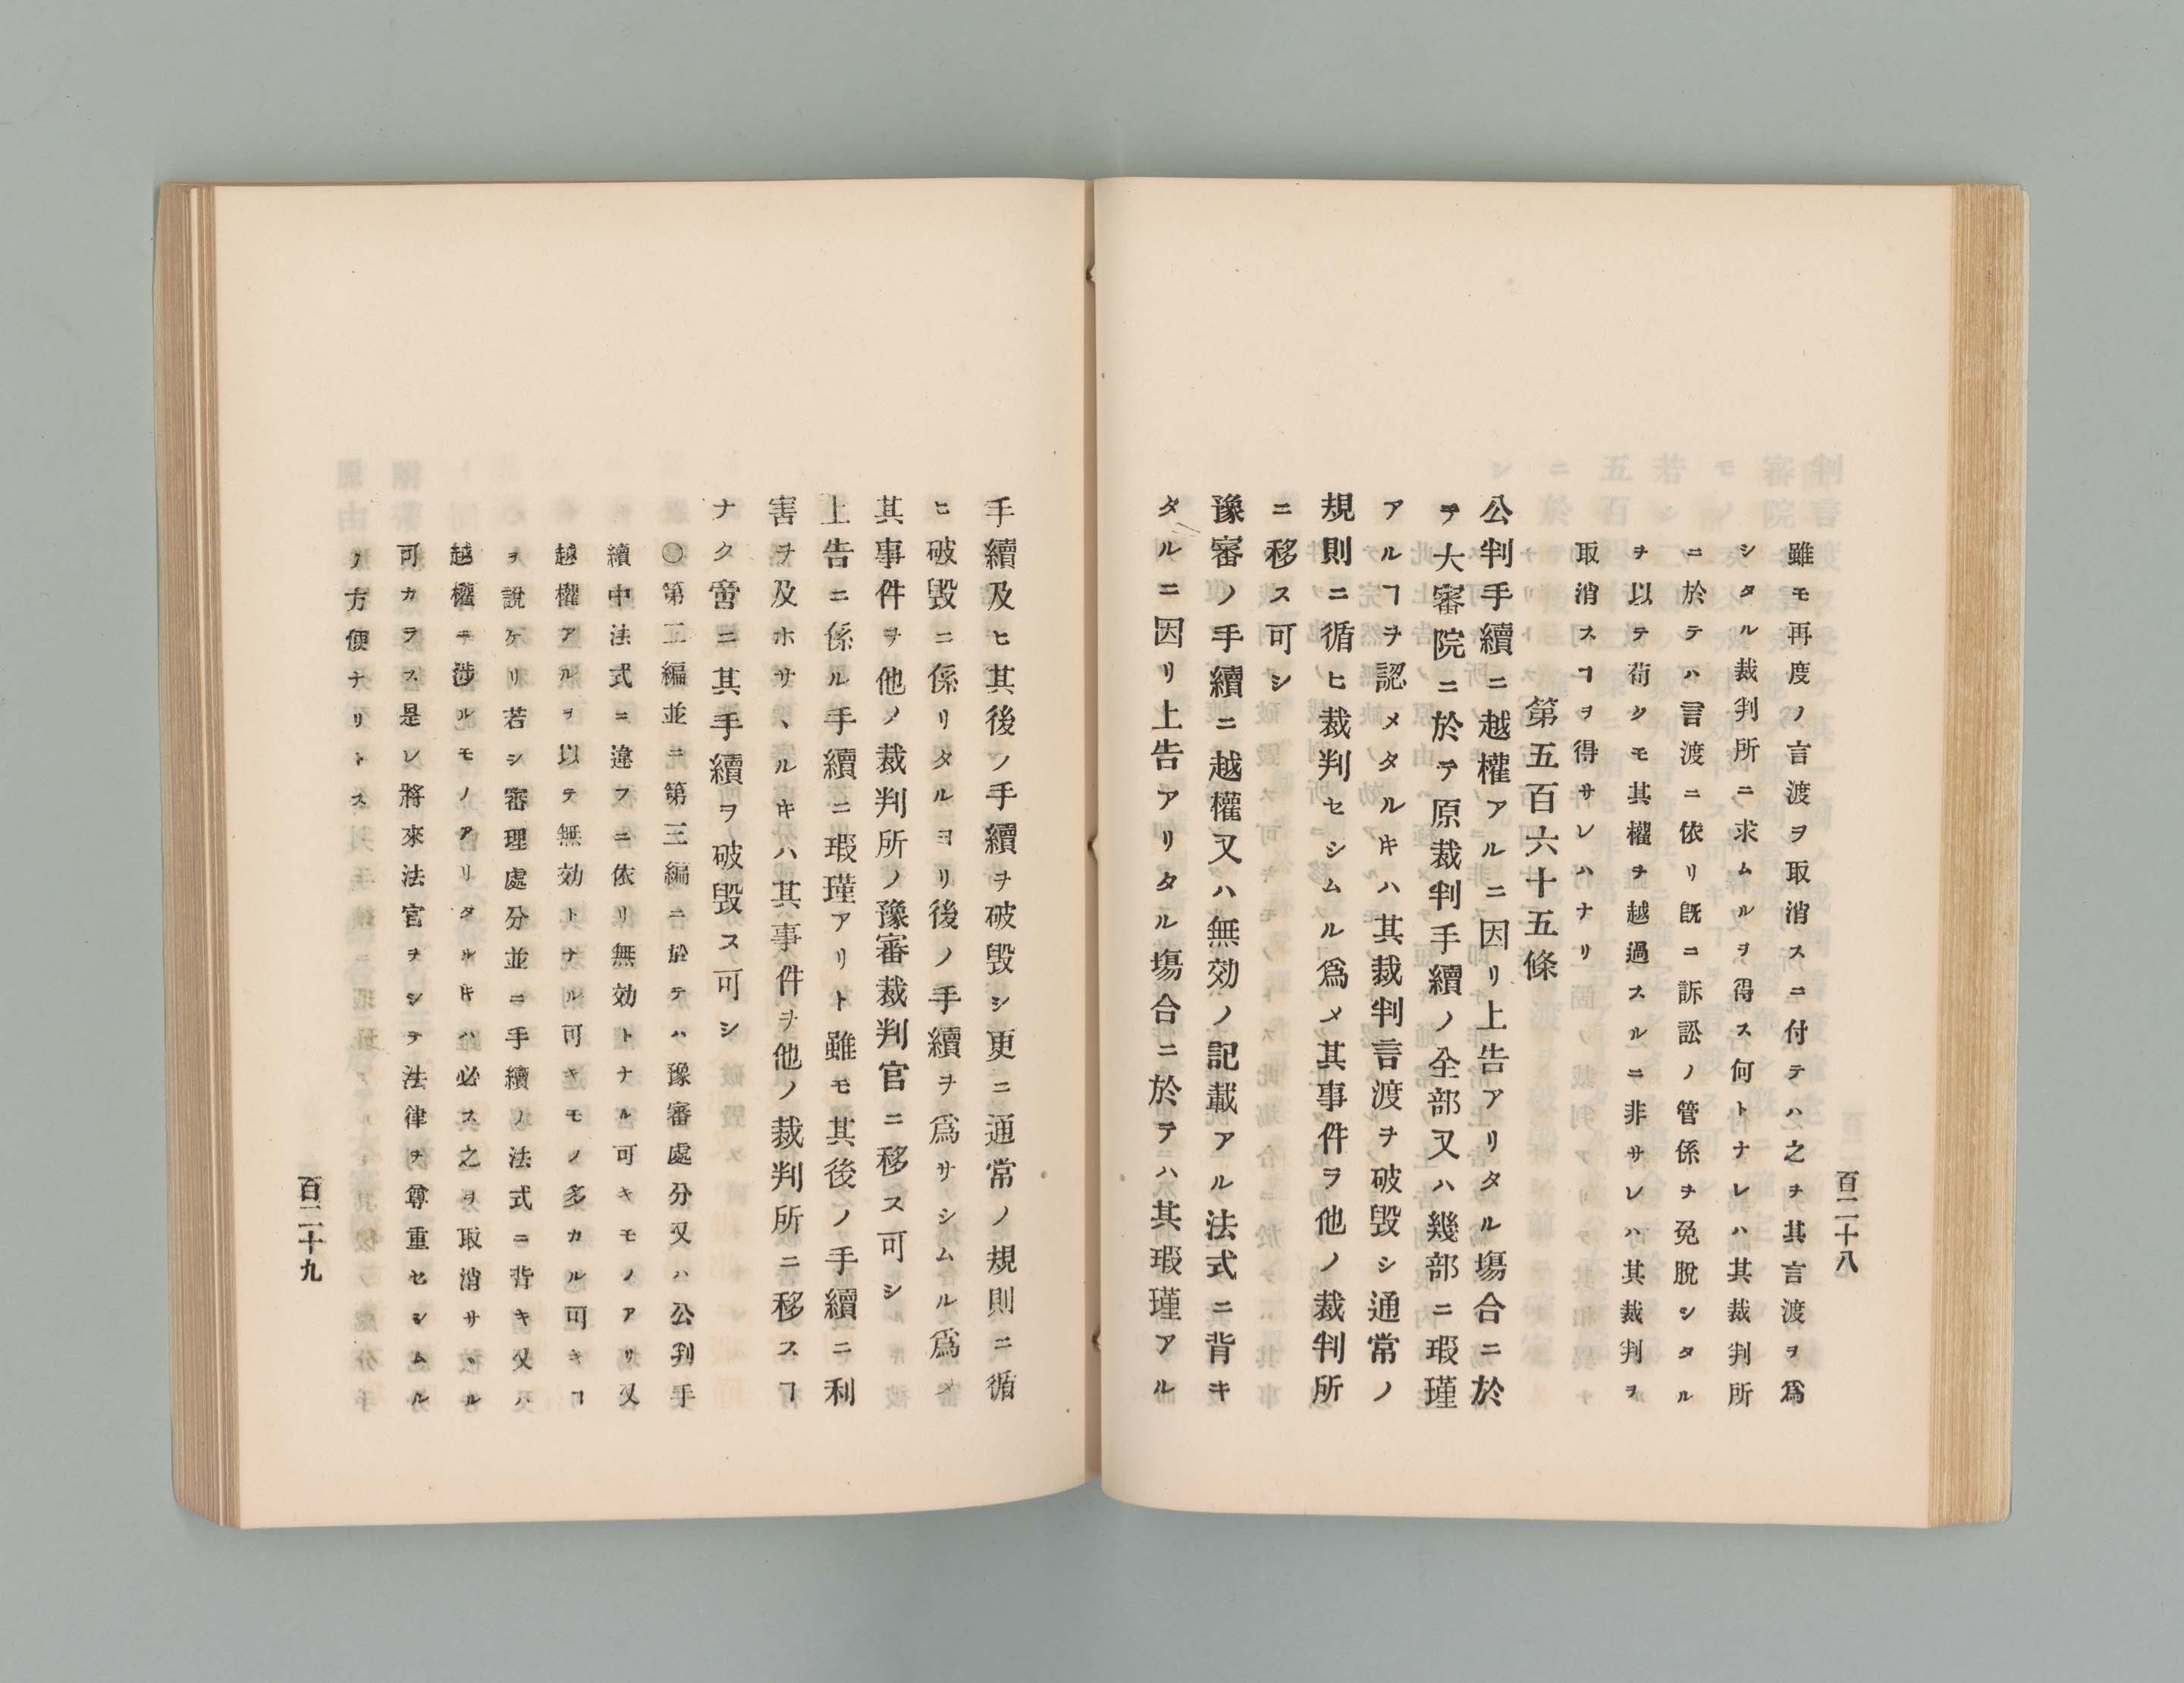 百二十八
雖モ再度ノ言渡ヲ取消スニ付テハ之ヲ其言渡ヲ爲
シタル裁判所ニ求ムルヲ得ス何トナレハ其裁判所
ニ於テハ言渡ニ依リ既ニ訴訟ノ管係ヲ免脫シタル
ヲ以テ茍クモ其權ヲ越過スルニ非サレハ其裁判ヲ
取消スヿヲ得サレハナリ
第五百六十五條
公判手續ニ越權アルニ因リ上告アリタル塲合ニ於
テ大審院ニ於テ原裁判手續ノ全部又ハ幾部ニ瑕瑾
アルヿヲ認メタルキハ其裁判言渡ヲ破毀シ通常ノ
規則ニ循ヒ裁判セシムル爲メ其事件ヲ他ノ裁判所
ニ移ス可シ
豫審ノ手續ニ越權又ハ無効ノ記載アル法式ニ背キ
タルニ因リ上告アリタル塲合ニ於テハ其瑕瑾アル
手續及ヒ其後ノ手續ヲ破毀シ更ニ通常ノ規則ニ循
ヒ破毀ニ係リタルヨリ後ノ手續ヲ爲サシムル爲メ
其事件ヲ他ノ裁判所ノ豫審裁判官ニ移ス可シ
上告ニ係ル手續ニ瑕瑾アリト雖モ其後ノ手續ニ利
害ヲ及ホサヽルキハ其事件ヲ他ノ裁判所ニ移スヿ
ナク啻ニ其手續ヲ破毀ス可シ
〇第二編並ニ第三編ニ於テハ豫審處分又ハ公判手
續中法式ニ違フニ依リ無効トナル可キモノアリ又
越權アルヲ以テ無効トナル可キモノ多カル可キヿ
ヲ說ケリ若シ審理處分並ニ手續ノ法式ニ背キ又ハ
越權ニ涉ルモノアリタルキハ必ス之ヲ取消サヽル
可カラス是レ將來法官ヲシテ法律ヲ尊重セシムル
ノ方便ナリトス
百二十九